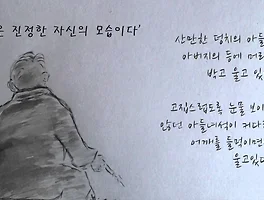 은 진정한 자신의 모습이다’
산만한 덩치의 아들
아버지의 등에 머리
박고 울고 있
고집스럽도록 눈물 보이
않던 아들녀석이 커다
어깨를 들먹이면
울고있다